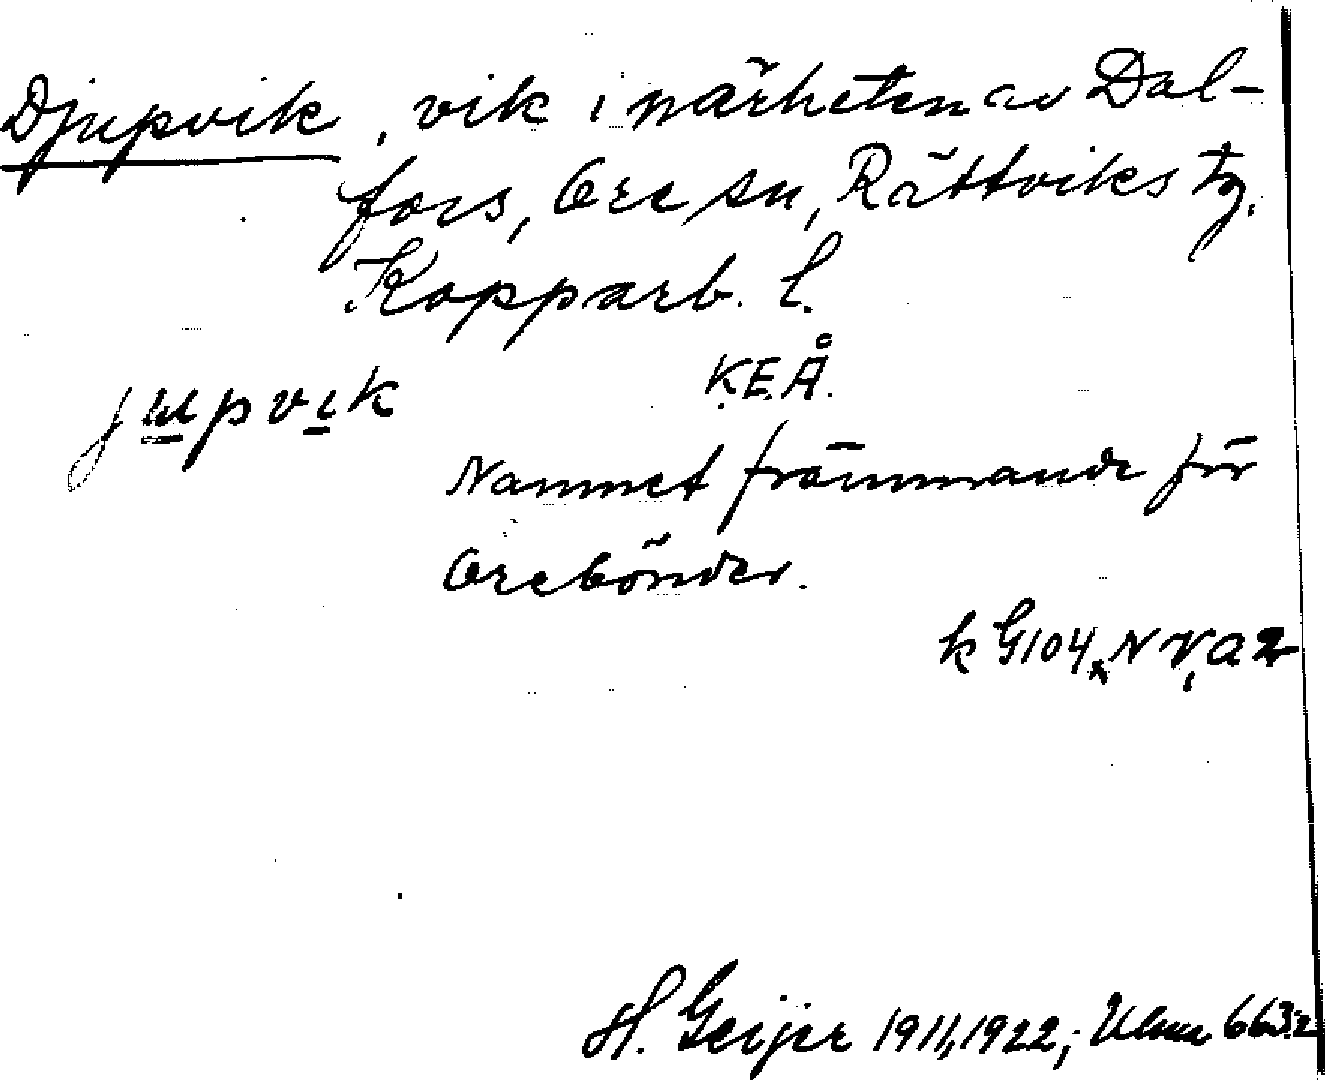 Djupvik, vik i närheten av Dal-
fors, Ore sn, Rättviks tg.
Kopparb. l.
K.E.Å.
jupvik
Namnet främmande för
Orebönder.
k G104
H. Geijer 1911, 1922; Ulma 663:2